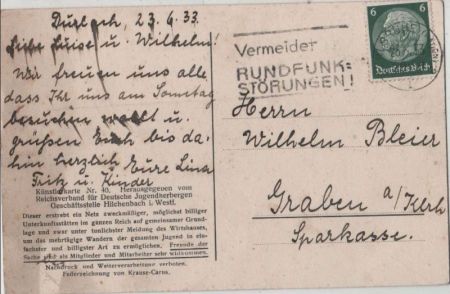 Durlach, 23.6.33.
Liebe Luise u. Wilhelm!
Wir freuen uns alle
dass Ihr uns am Sonntag
besuchen wollt u.
grüßen Euch bis da-
hin herzlich Eure Lina
Fritz u. Kinder
Künstlerkarte Nr. 40. Herausgegeben vom
Reichsverband für Deutsche Jugendherbergen
Geschäftsstelle Hilchenbach i. Westf.
Dieser erstrebt ein Netz zweckmäßiger, möglichst billiger
Unterkunftsstätten im ganzen Reich auf gemeinsamer Grund-
lage und zwar unter tunlichster Meidung des Wirtshauses,
um das mehrtägige Wandern der gesamten Jugend in ein-
fachster und billigster Art zu ermöglichen. Freunde der
Sache sind als Mitglieder und Mitarbeiter sehr willkommen.
Nachdruck und Weiterverarbeitung verboten.
Federzeichnung von Krause-Carus.
Vermeidet
RUNDFUNK-
STÖRUNGEN!
6 6
Deutsches Reich
Herrn
Wilhelm Bleier
Graben a/Klrh
Sparkasse.